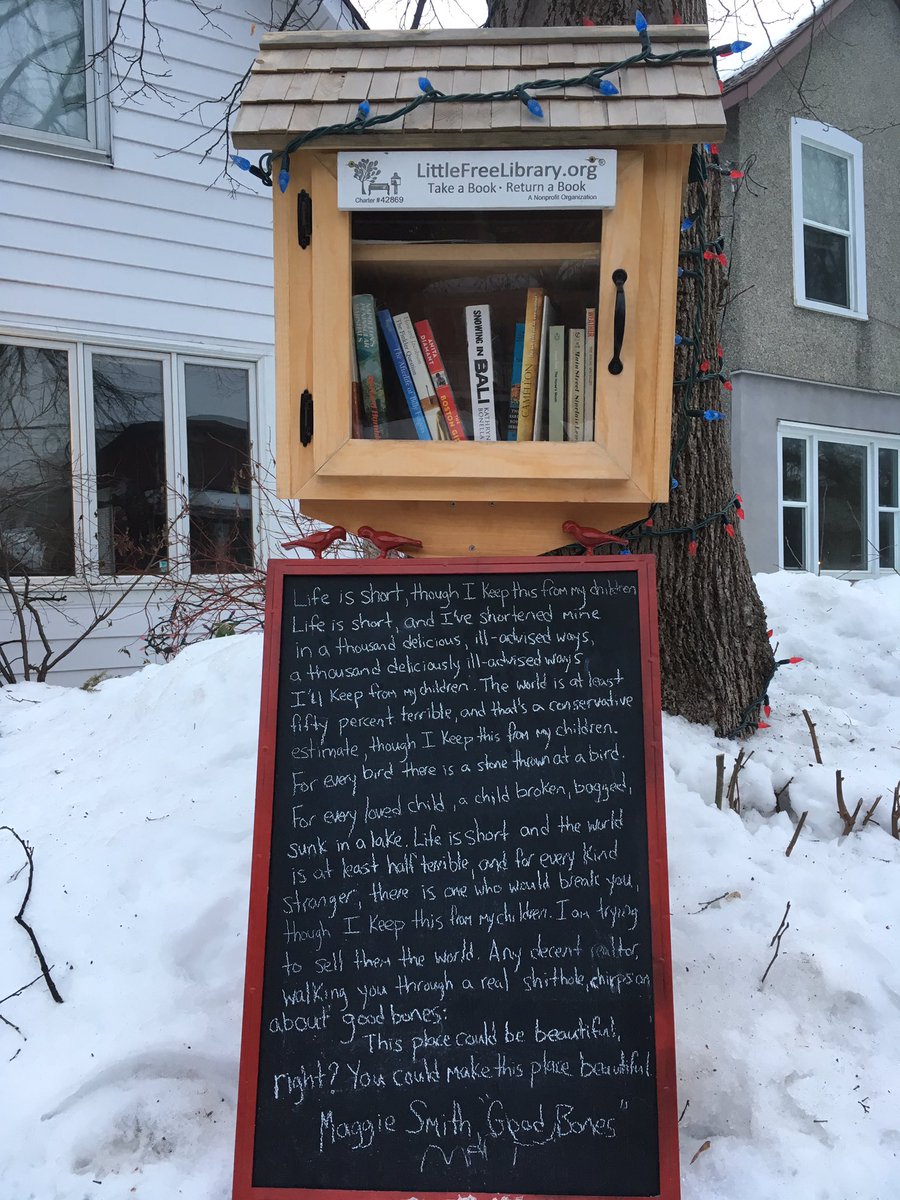 LittleFreeLibrary.org®
Take a Book • Return a Book
Charter #42869
A Nonprofit Organization
ANITA DIAMANT
THE BOSTON GIRL
SNOWING IN BALI
KATHRYN BONELLA
Main Street Sinclair Lewis
Life is short, though I Keep this from my children
Life is short, and I've shortened mine
in a thousand delicious, ill-advised ways,
a thousand deliciously ill-advised ways
I'll Keep from my children. The world is at least
fifty percent terrible, and that's a conservative
estimate, though I Keep this from my children.
For every bird there is a stone thrown at a bird.
For every loved child, a child broken, bagged,
sunk in a lake. Life is short and the world
is at least half terrible, and for every kind
stranger, there is one who would break you,
though I Keep this from my children. I am trying
to sell them the world. Any decent realtor,
walking you through a real shithole, chirps on
about good bones:
This place could be beautiful,
right? You could make this place beautiful
Maggie Smith, "Good Bones"